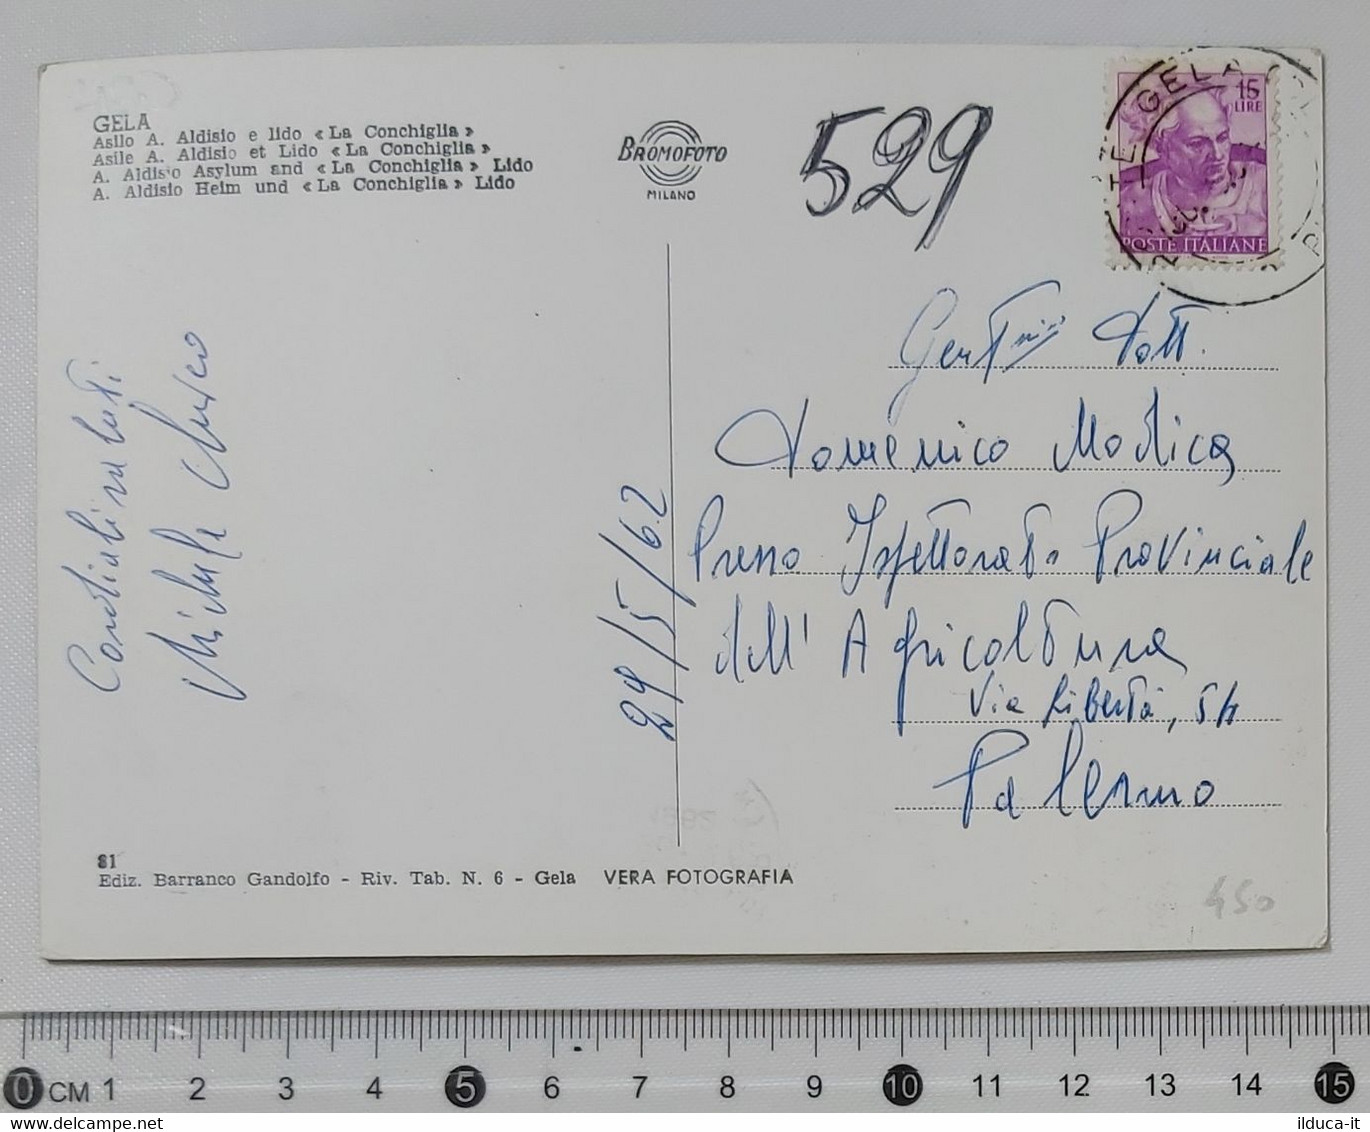 GELA
Asilo A. Aldisio e lido « La Conchiglia »
Asile A. Aldisio et Lido « La Conchiglia »
A. Aldisio Asylum and « La Conchiglia » Lido
A. Aldisio Heim und « La Conchiglia » Lido
BROMOFOTO
MILANO
529
GELA
15
LIRE
POSTE ITALIANE
Cordiali saluti
Michele
29/5/62
Gent/mo Dott.
Domenico Modica
Presso Ispettorato Provinciale
dell' Agricoltura
Via Libertà, 54
Palermo
81
Ediz. Barranco Gandolfo - Riv. Tab. N. 6 - Gela VERA FOTOGRAFIA
450
0 CM 1 2 3 4 5 6 7 8 9 10 11 12 13 14 15
ilduca-it